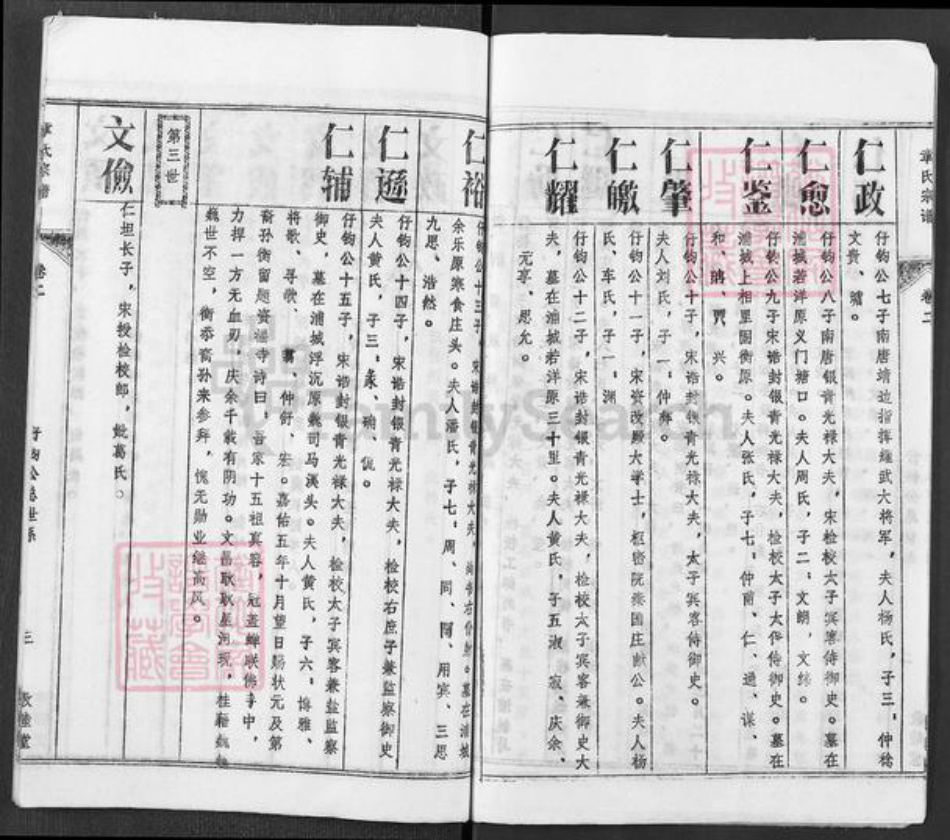 章氏宗谱
卷二
仁政
仔钧公七子南唐靖边指挥继武大将军，夫人杨氏，子三：仲稔
文贵、
仁愈
仔钧公八子南唐银青光禄大夫，宋检校太子宾客侍御史。墓在
浦城若洋原义门塘口。夫人周氏，子二：文朗，文
仁鉴
仔钧公九子宋诰封银青光禄大夫，检校太子太保侍御史。墓在
浦城上相里固街原。夫人张氏，子七：仲甫、仁、通、谋、
和、 兴。
仁肇
仔钧公十子，宋诰封银青光禄大夫，太子宾客侍御史。
夫人刘氏，子一：仲
仁皦
仔钧公十一子，宋资政殿大学士，枢密院秦国庄献公。夫人杨
氏，车氏，子一：渊
仁耀
仔钧公十二子，宋诰封银青光禄大夫，检校太子宾客兼御史大
夫，墓在浦城若洋原三十里。夫人黄氏，子五淑 寂、庆余、
元亨、恩允。
仁裕
仔钧公十三子，宋诰封银青光禄大夫，尚书右仆射。墓在浦城
余乐原寒食庄头。夫人潘氏，子七：周、同、 用宾、三思
九思、浩然。
仁逊
仔钧公十四子，宋诰封银青光禄大夫，检校右庶子兼监察御史
夫人黄氏，子三：彖、 侃。
仁辅
仔钧公十五子，宋诰封银青光禄大夫，检校太子宾客兼盐监察
御史，墓在浦城浮沉原魏司马溪头。夫人黄氏，子六：博雅、
将歌、寻 、 仲舒、宏。嘉佑五年十月望日赐状元及第
裔孙衡留题资福寺诗曰，吾家十五祖真容，冠盖蝉联佛寺中，
力捍一方无血刃，庆余千载有阴功。文昌耿耿星河现，桂籍巍巍
魏世不空，衡忝裔孙来参拜，愧无勋业继高风。
第三世
文俭
仁坦长子，宋授检校郎，妣葛氏。
章氏宗谱
卷二
仔钧公总世系
三
敦睦堂